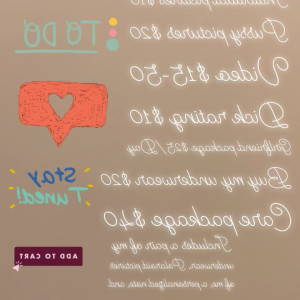 pictures
Pussy pictures $20
Video $15-50
Dick rating $10
Girlfriend package $25/Day
Buy my underwear $20
Care package $40
Includes a pair of my
underwear, Polaroid pictures
of me, a personalized note, and
TO DO
Stay
Tuned!
ADD TO CART